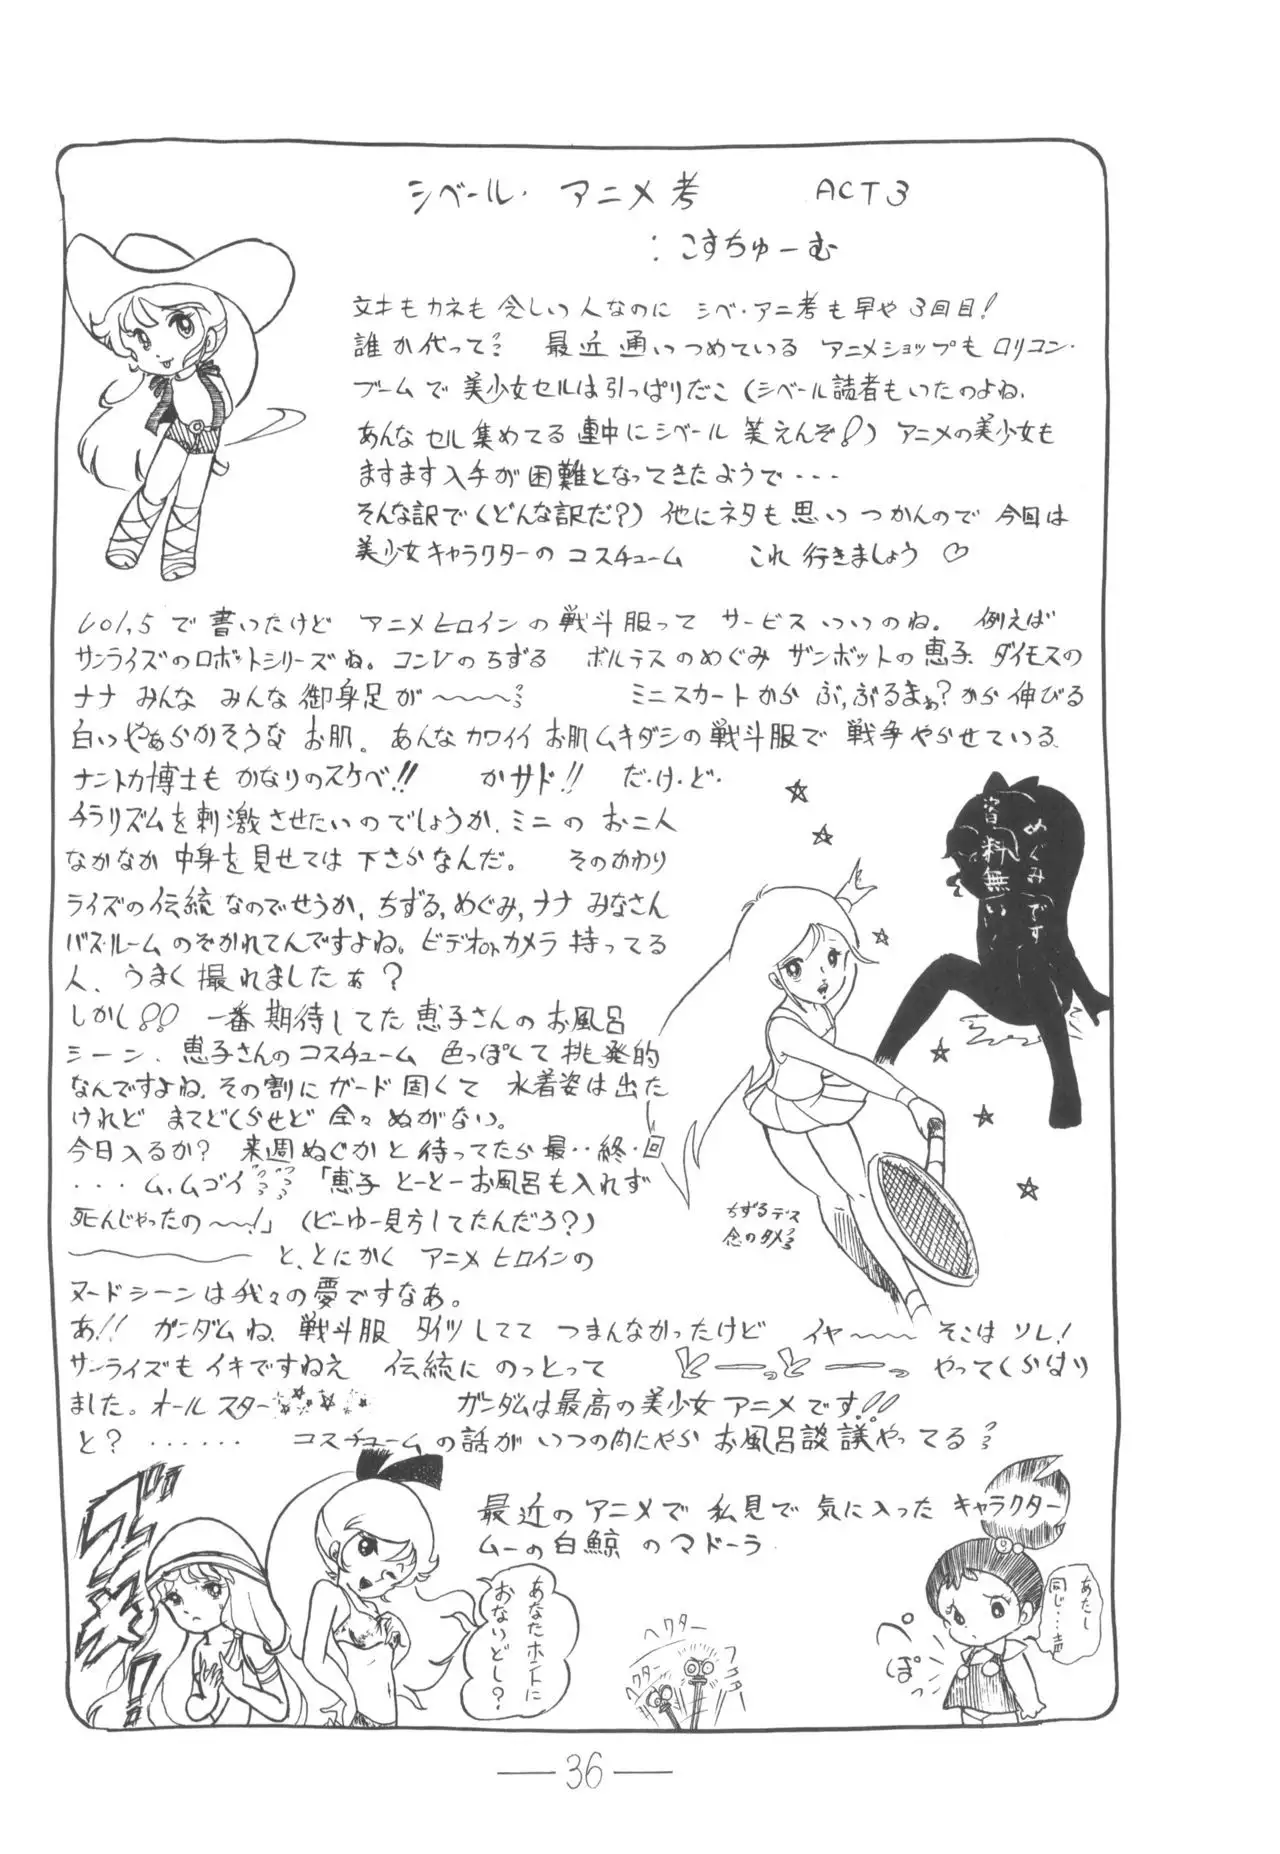 シベール・アニメ考　ACT3
：こすちゅーむ
文才もカネも乏しい人なのに シベ・アニ考も早や3回目！
誰か代って？？ 最近通いつめている アニメショップもロリコン・
ブームで 美少女セルは引っぱりだこ（シベール読者もいたのよね、
あんなセル集めてる連中にシベール笑えんぞ！）アニメの美少女も
ますます入手が困難となってきたようで・・・
そんな訳で（どんな訳だ？）他にネタも思いつかんので 今回は
美少女キャラクターの コスチューム　これ行きましょう ♡
Vol.5で書いたけど アニメヒロインの戦斗服って サービスいいのね。例えば
サンライズのロボットシリーズね。コンVのちずる ボルテスのめぐみ ザンボットの恵子、ダイモスの
ナナ みんな みんな御身足が〜〜〜 ミニスカートから ぶ,ぶるまぁ？から伸びる
白いやぁらかそうな お肌。あんなカワイイお肌ムキダシの戦斗服で 戦争やらせている
ナントカ博士も かなりのスケベ!!　かサド!!　だ・け・ど・
チラリズムを刺激させたいのでしょうか、ミニの お二人
なかなか 中身を見せては下さらなんだ。そのかわり
ライズの伝統なのでせうか、ちずる,めぐみ,ナナ みなさん
バス・ルームのぞかれてんですよね。ビデオorカメラ持ってる
人、うまく撮れましたぁ？
しかし!!　一番期待してた恵子さんのお風呂
シーン、恵子さんのコスチューム 色っぽくて挑発的
なんですよね、その割にガード固くて 水着姿は出た
けれど まてどくらせど 全々ぬがない。
今日入るか？ 来週ぬぐかと待ってたら最・・終・回
・・・ム,ムゴイ 「恵子 とーとーお風呂も入れず
死んじゃったの〜〜！」（どーゆー見方してたんだろ？）
〜〜〜 と、とにかく アニメヒロインの
ヌードシーンは我々の夢ですなぁ。
あ!! ガンダムね、戦斗服 タイツしてて つまんなかったけど イヤ〜〜 そこはソレ！
サンライズもイキですねえ 伝統にのっとって どーっと ーっ やってくらはり
ました。オールスター☆☆☆☆　ガンダムは最高の美少女アニメです!!
と？・・・・・・ コスチュームの話が いつの肉にやら お風呂談議やってる
めぐみです
資料無い！
ちずるデス
念のタメ
最近のアニメで 私見で気に入った キャラクター
ムーの白鯨 のマドーラ
あなたホントに
おないどし？
ヘクター
ヘクター
ぺ
ぽっ
あたし
同じ…
36